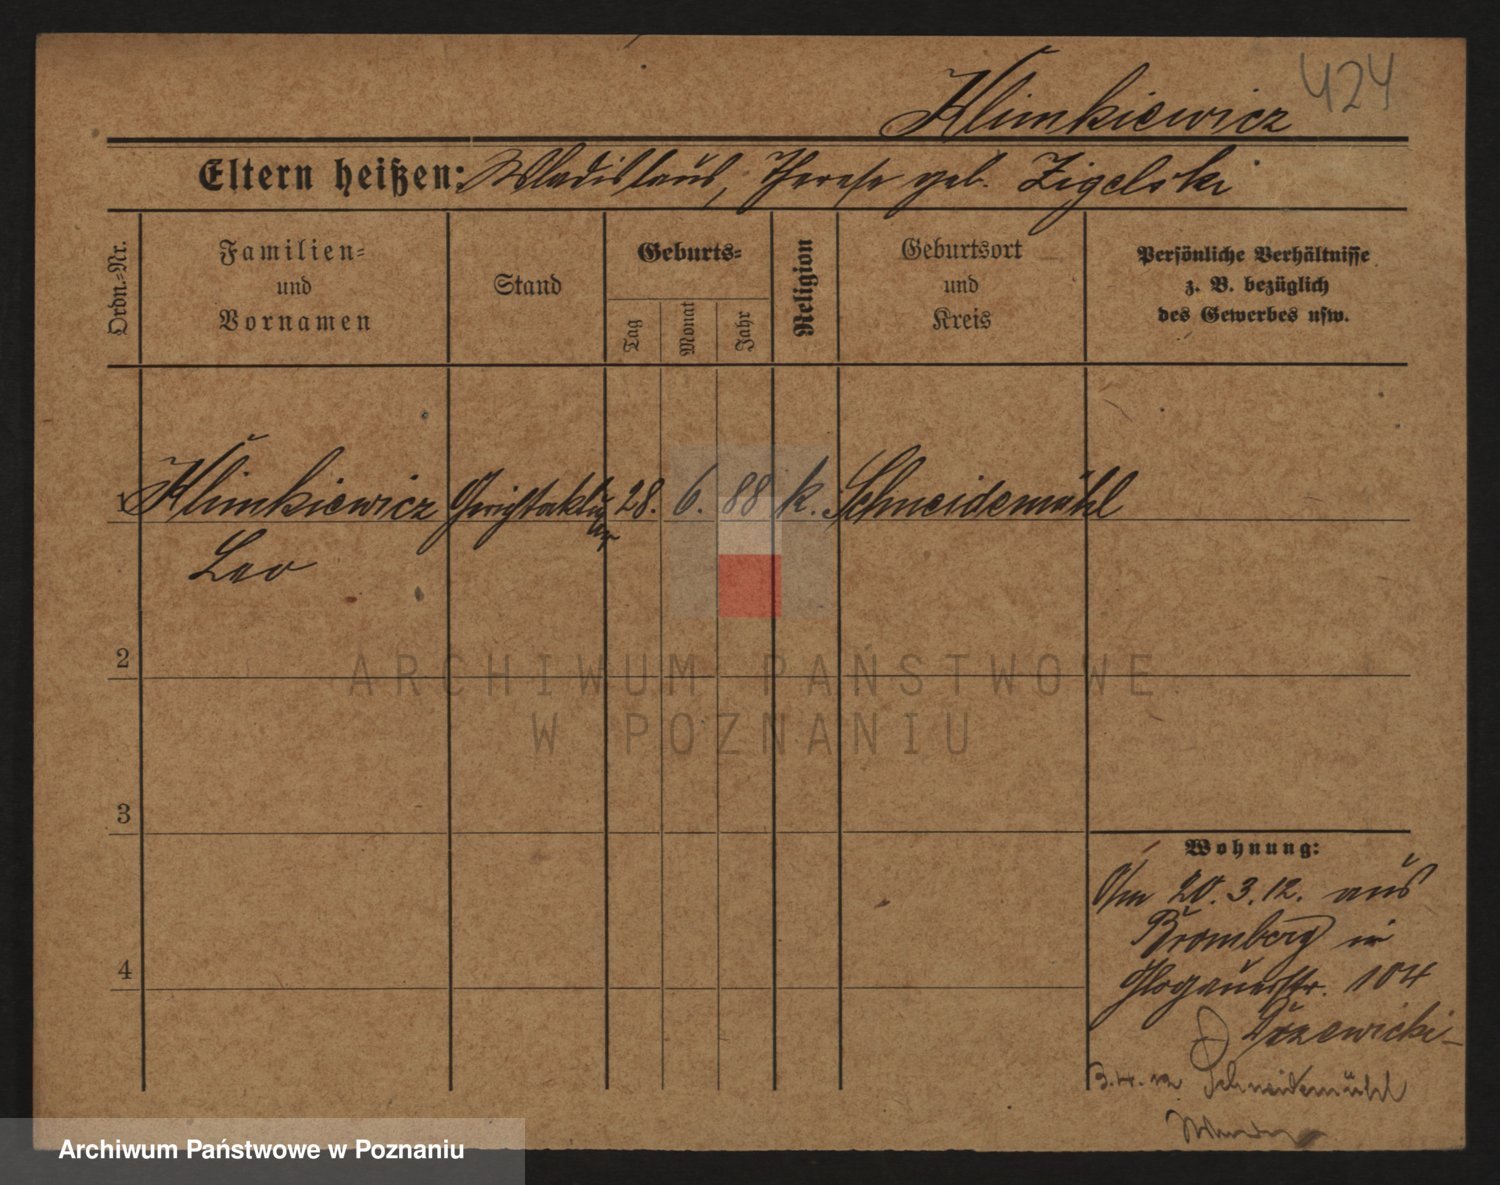 424
Klimkiewicz
Eltern heißen: Wladislaus, Therese geb. Zigelski
Ordn.-Nr.
Familien-
und
Vornamen
Stand
Geburts-
Tag
Monat
Jahr
Religion
Geburtsort
und
Kreis
Persönliche Verhältnisse
z. B. bezüglich
des Gewerbes usw.
1 Klimkiewicz Gerichtsaktuar 28. 6. 88 k. Schneidemühl
Leo
2
3
4
Wohnung:
Am 20.3.12. aus
Bromberg in
Glogauerstr. 104
Schneidemühl
ARCHIWUM PAŃSTWOWE
W POZNANIU
Archiwum Państwowe w Poznaniu